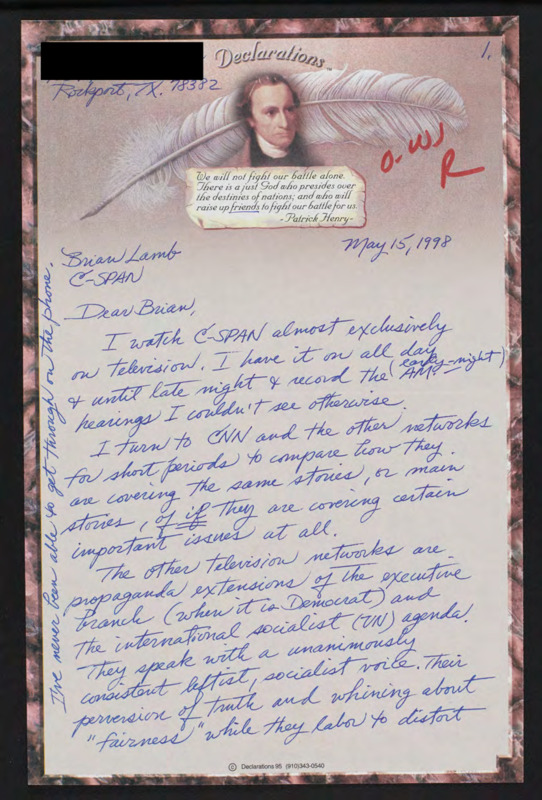 Declarations™
1.
Rockport, TX. 78382
We will not fight our battle alone.
There is a just God who presides over
the destinies of nations; and who will
raise up friends to fight our battle for us.
- Patrick Henry-
O-WJ
R
May 15, 1998
Brian Lamb
C-SPAN
Dear Brian,
I watch C-SPAN almost exclusively
on television. I have it on all day
& until late night & record the (early AM-night)
hearings I couldn't see otherwise.
I turn to CNN and the other networks
for short periods to compare how they
are covering the same stories, or main
stories, of if they are covering certain
important issues at all.
The other television networks are
propaganda extensions of the executive
branch (when it is Democrat) and
the international socialist (UN) agenda.
They speak with a unanimously
consistent leftist, socialist voice. Their
perversion of truth and whining about
"fairness" while they labor to distort
I've never been able to get through on the phone.
© Declarations 95 (910)343-0540